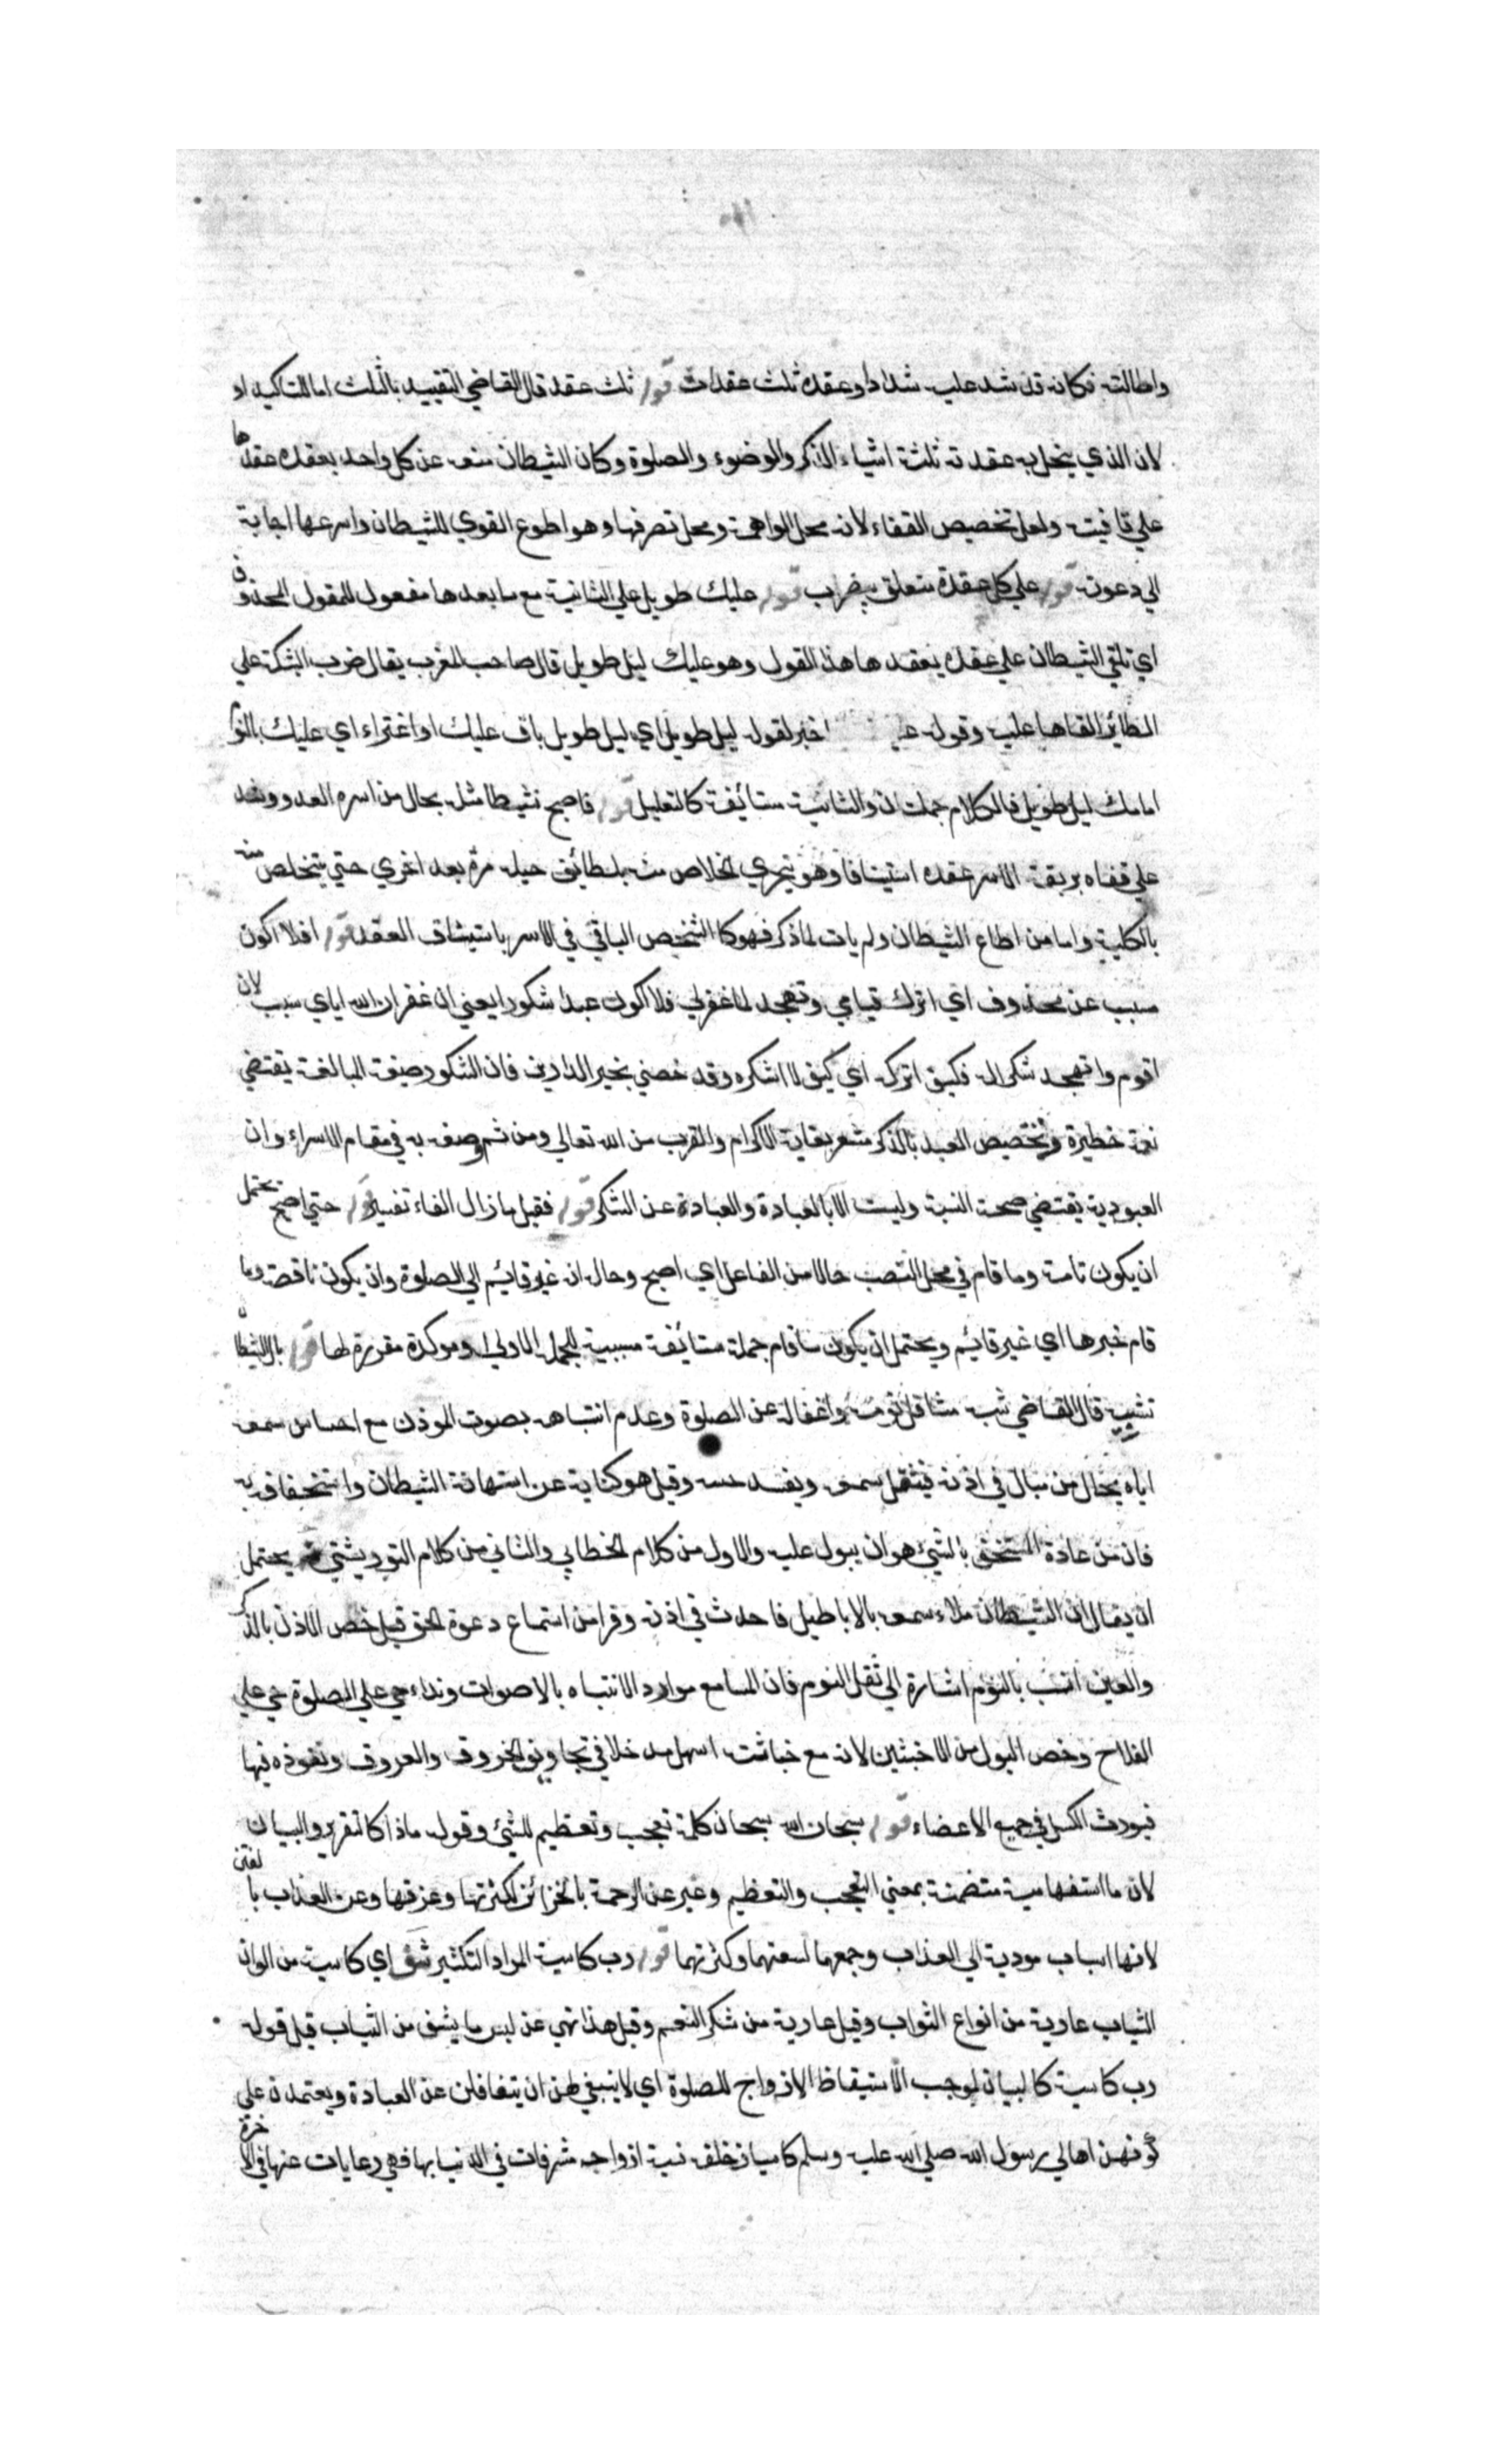 واطالته فكانه قد شد عليه شدادا وعقده ثلث عقدات قوله ثلث عقد قال القاضي التقييد بالثلث اما للتاكيد او
لان الذي ينحل به عقدته ثلثة اشياء الذكر والوضوء والصلوة وكان الشيطان منعه عن كل واحد بعقده عقدها
علي قافيته ولعل تخصيص القفاء لانه محل الواهمة ومحل تصرفها وهو اطوع القوي للشيطان واسرعها اجابة
الي دعوته قوله علي كل عقدة متعلق بيضرب قوله عليك طويل علي الثانية مع ما بعدها مفعول للمقول المحذوف
اي تلقي الشيطان علي عقده يعقدها هذا القول وهو عليك ليل طويل قال صاحب المغرب يقال ضرب الشبكة علي
الطائر القاها عليه وقوله اخبر لقوله ليل طويل اي ليل طويل باق عليك او اغراء اي عليك بالنوم
امامك ليل طويل فالكلام جملتان والثانية مستأنفة كالتعليل قوله فاصبح نشيطا مثل بحال من اسره العدو وشد
علي قفاه بربقة الاسر عقده استيثاقا وهو يتحري الخلاص منه بلطائف حيله مرة بعد اخري حتي يتخلص منه
بالكلية واما من اطاع الشيطان ولم يات لما ذكر فهو كالشخص الباقي في الاسر باستيثاق العقد قوله افلا اكون
مسبب عن محذوف اي اترك قيامي وتهجد لما غفر لي فلا اكون عبدا شكورا يعني ان غفران الله اياي سبب لان
اقوم واتهجد شكرا له فكيف اتركه اي كيف لا اشكره وقد خصني بخير الدارين فان الشكور صيغة المبالغة يقتضي
نعمة خطيرة وتخصيص العبد بالذكر مشعر بغاية الاكرام والقرب من الله تعالي ومن ثم وصف به في مقام الاسراء وان
العبودية يقتضي صحة النسبة وليست الا بالعبادة والعبادة عن الشكر قوله فقيل ما زال الفاء تفسير قوله حتي اصبح يحتمل
ان يكون تامة وما قام في محل النصب حالا من الفاعل اي اصبح وحاله انه غير قائم الي الصلوة وان يكون ناقصة وما
قام خبرها اي غير قائم ويحتمل ان يكون ما قام جملة مستأنفة مبينة للجملة الاولي او موكدة مقررة لها قوله بال الشيطان
تشبيب قال القاضي شبه تثاقل نومه واغفاله عن الصلوة وعدم انتباهه بصوت الموذن مع احساس سمعه
اياه بحال من يبال في اذنه فيثقل سمعه ويفسد حسه وقيل هو كناية عن استهانة الشيطان واستخفافه به
فان من عادة المستخف بالشئ هو ان يبول عليه والاول من كلام الخطابي والثاني من كلام التوربشتي قوله يحتمل
ان يقال ان الشيطان ملاء سمعه بالاباطيل فاحدث في اذنه وقرا من استماع دعوة الحق قيل خص الاذن بالذكر
والعين انسب بالنوم اشارة الي ثقل النوم فان المسامع موارد الانتباه بالاصوات ونداء حي علي الصلوة حي علي
الفلاح وخص البول من الاخبثين لانه مع خباثته اسهل مدخلا في تجاويف الخروق والعروق ونفوذه فيها
فيورث الكسل في جميع الاعضاء قوله سبحان الله سبحان كلمة تعجب وتعظيم للشئ وقوله ماذا كالتقرير والبيان
لان ما استفهامية متضمنة بمعني التعجب والتعظيم وعبر عن الرحمة بالخزائن لكثرتها وعزتها وعن العذاب بالفتن
لانها اسباب مودية الي العذاب وجمعهما لسعتهما وكثرتهما قوله رب كاسية المراد التكثير شف اي كاسية من الوان
الثياب عارية من انواع الثواب وقيل عارية من شكر النعم وقيل هذا نهي عن لبس ما يشف من الثياب قيل قوله
رب كاسية كالبيان لموجب الاستيقاظ الازواج للصلوة اي لا ينبغي لهن ان يتغافلن عن العبادة ويعتمدن علي
كونهن اهالي رسول الله صلي الله عليه وسلم كاسيات خلف نسبة ازواجه مشرفات في الدنيا بها فهي عاريات عنها في الاخرة